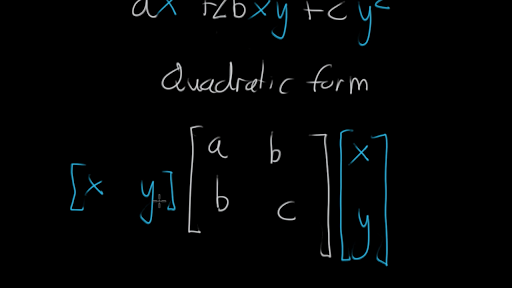 ax² +2bxy +cy²
Quadratic form
[x y] [a b
b c] [x
y]